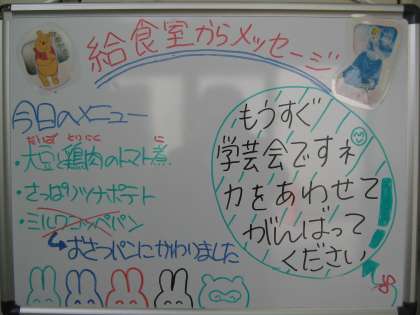 給食室からメッセージ
今日のメニュー
だいず とりにく に
・大豆と鶏肉のトマト煮
・さっぱりツナポテト
・ミルクコッペパン
↳おさつパンにかわりました
もうすぐ
学芸会ですネ
力をあわせて
がんばって
ください!